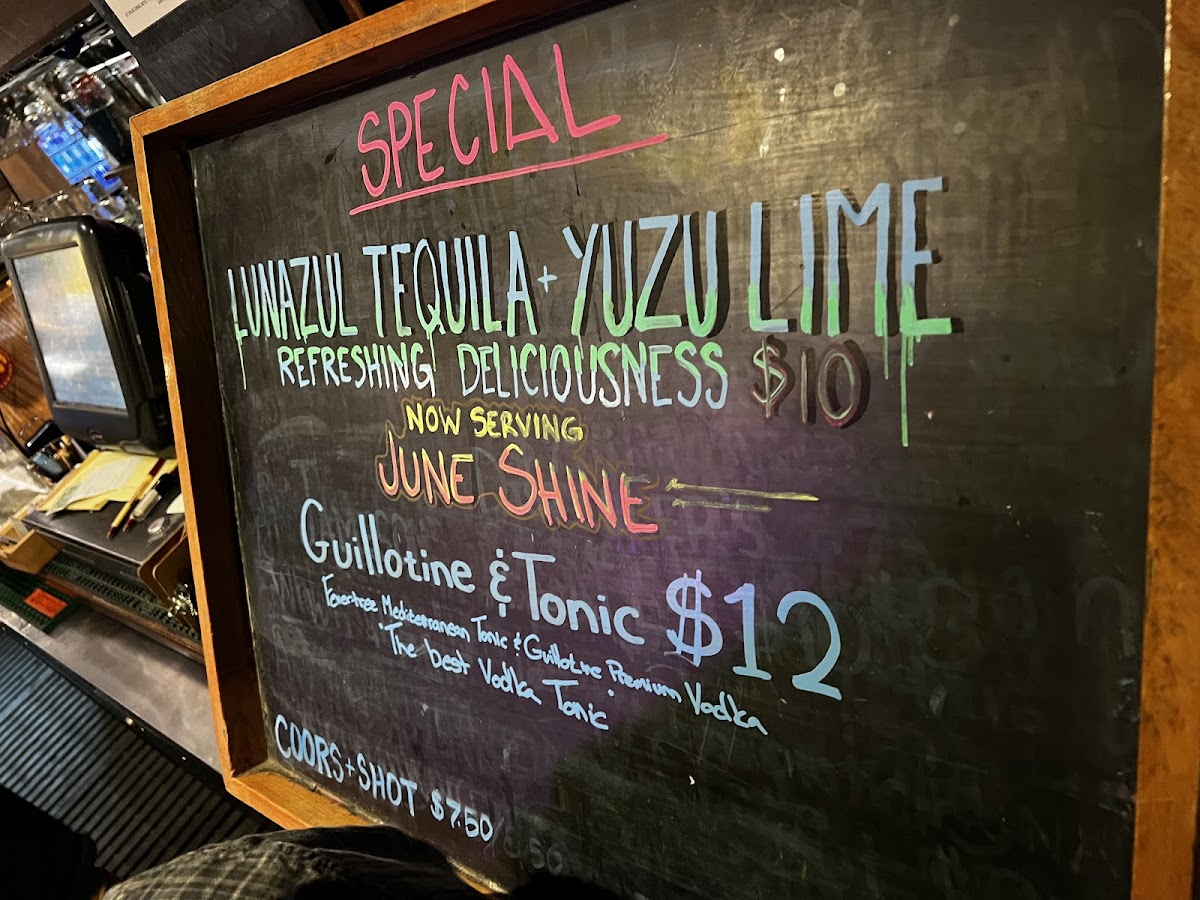 SPECIAL
LUNAZUL TEQUILA + YUZU LIME
REFRESHING DELICIOUSNESS $10
NOW SERVING
JUNE SHINE
Guillotine & Tonic $12
Fever-tree Mediterranean Tonic & Guillotine Premium Vodka
"The best Vodka Tonic"
COORS + SHOT $7.50